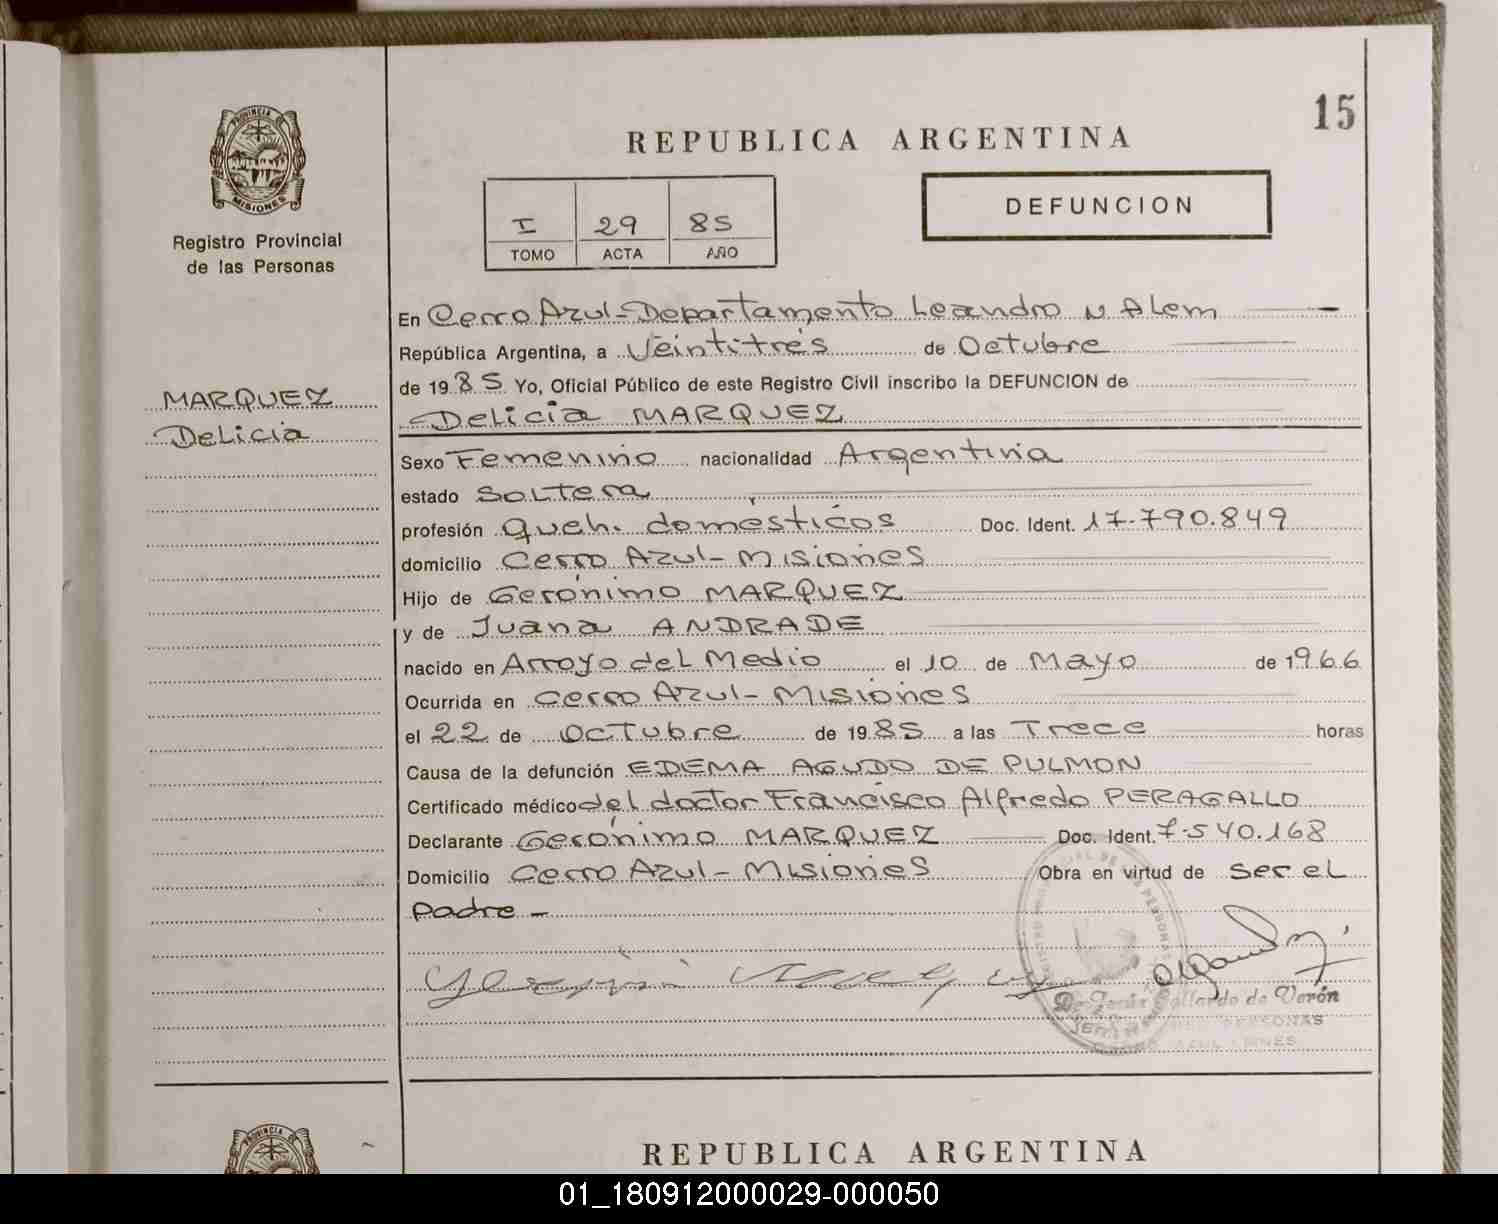 15
PROVINCIA DE
MISIONES
Registro Provincial
de las Personas
REPUBLICA ARGENTINA
I 29 85
TOMO ACTA AÑO
DEFUNCION
MARQUEZ
Delicia
En Cerro Azul-Departamento Leandro N Alem
República Argentina, a Veintitrés de Octubre
de 1985 Yo, Oficial Público de este Registro Civil inscribo la DEFUNCION de
Delicia MARQUEZ
Sexo Femenino nacionalidad Argentina
estado Soltera
profesión queh. domésticos Doc. Ident. 17.790.849
domicilio Cerro Azul-Misiones
Hijo de Gerónimo MARQUEZ
y de Juana ANDRADE
nacido en Arroyo del Medio el 10 de Mayo de 1966
Ocurrida en Cerro Azul-Misiones
el 22 de Octubre de 1985 a las Trece horas
Causa de la defunción EDEMA AGUDO DE PULMON
Certificado médico del doctor Francisco Alfredo PERAGALLO
Declarante Gerónimo MARQUEZ Doc. Ident. 7.540.168
Domicilio Cerro Azul-Misiones Obra en virtud de ser el
padre -
Gallardo de Verón
PERSONAS
PROVINCIA DE
REPUBLICA ARGENTINA
01_180912000029-000050